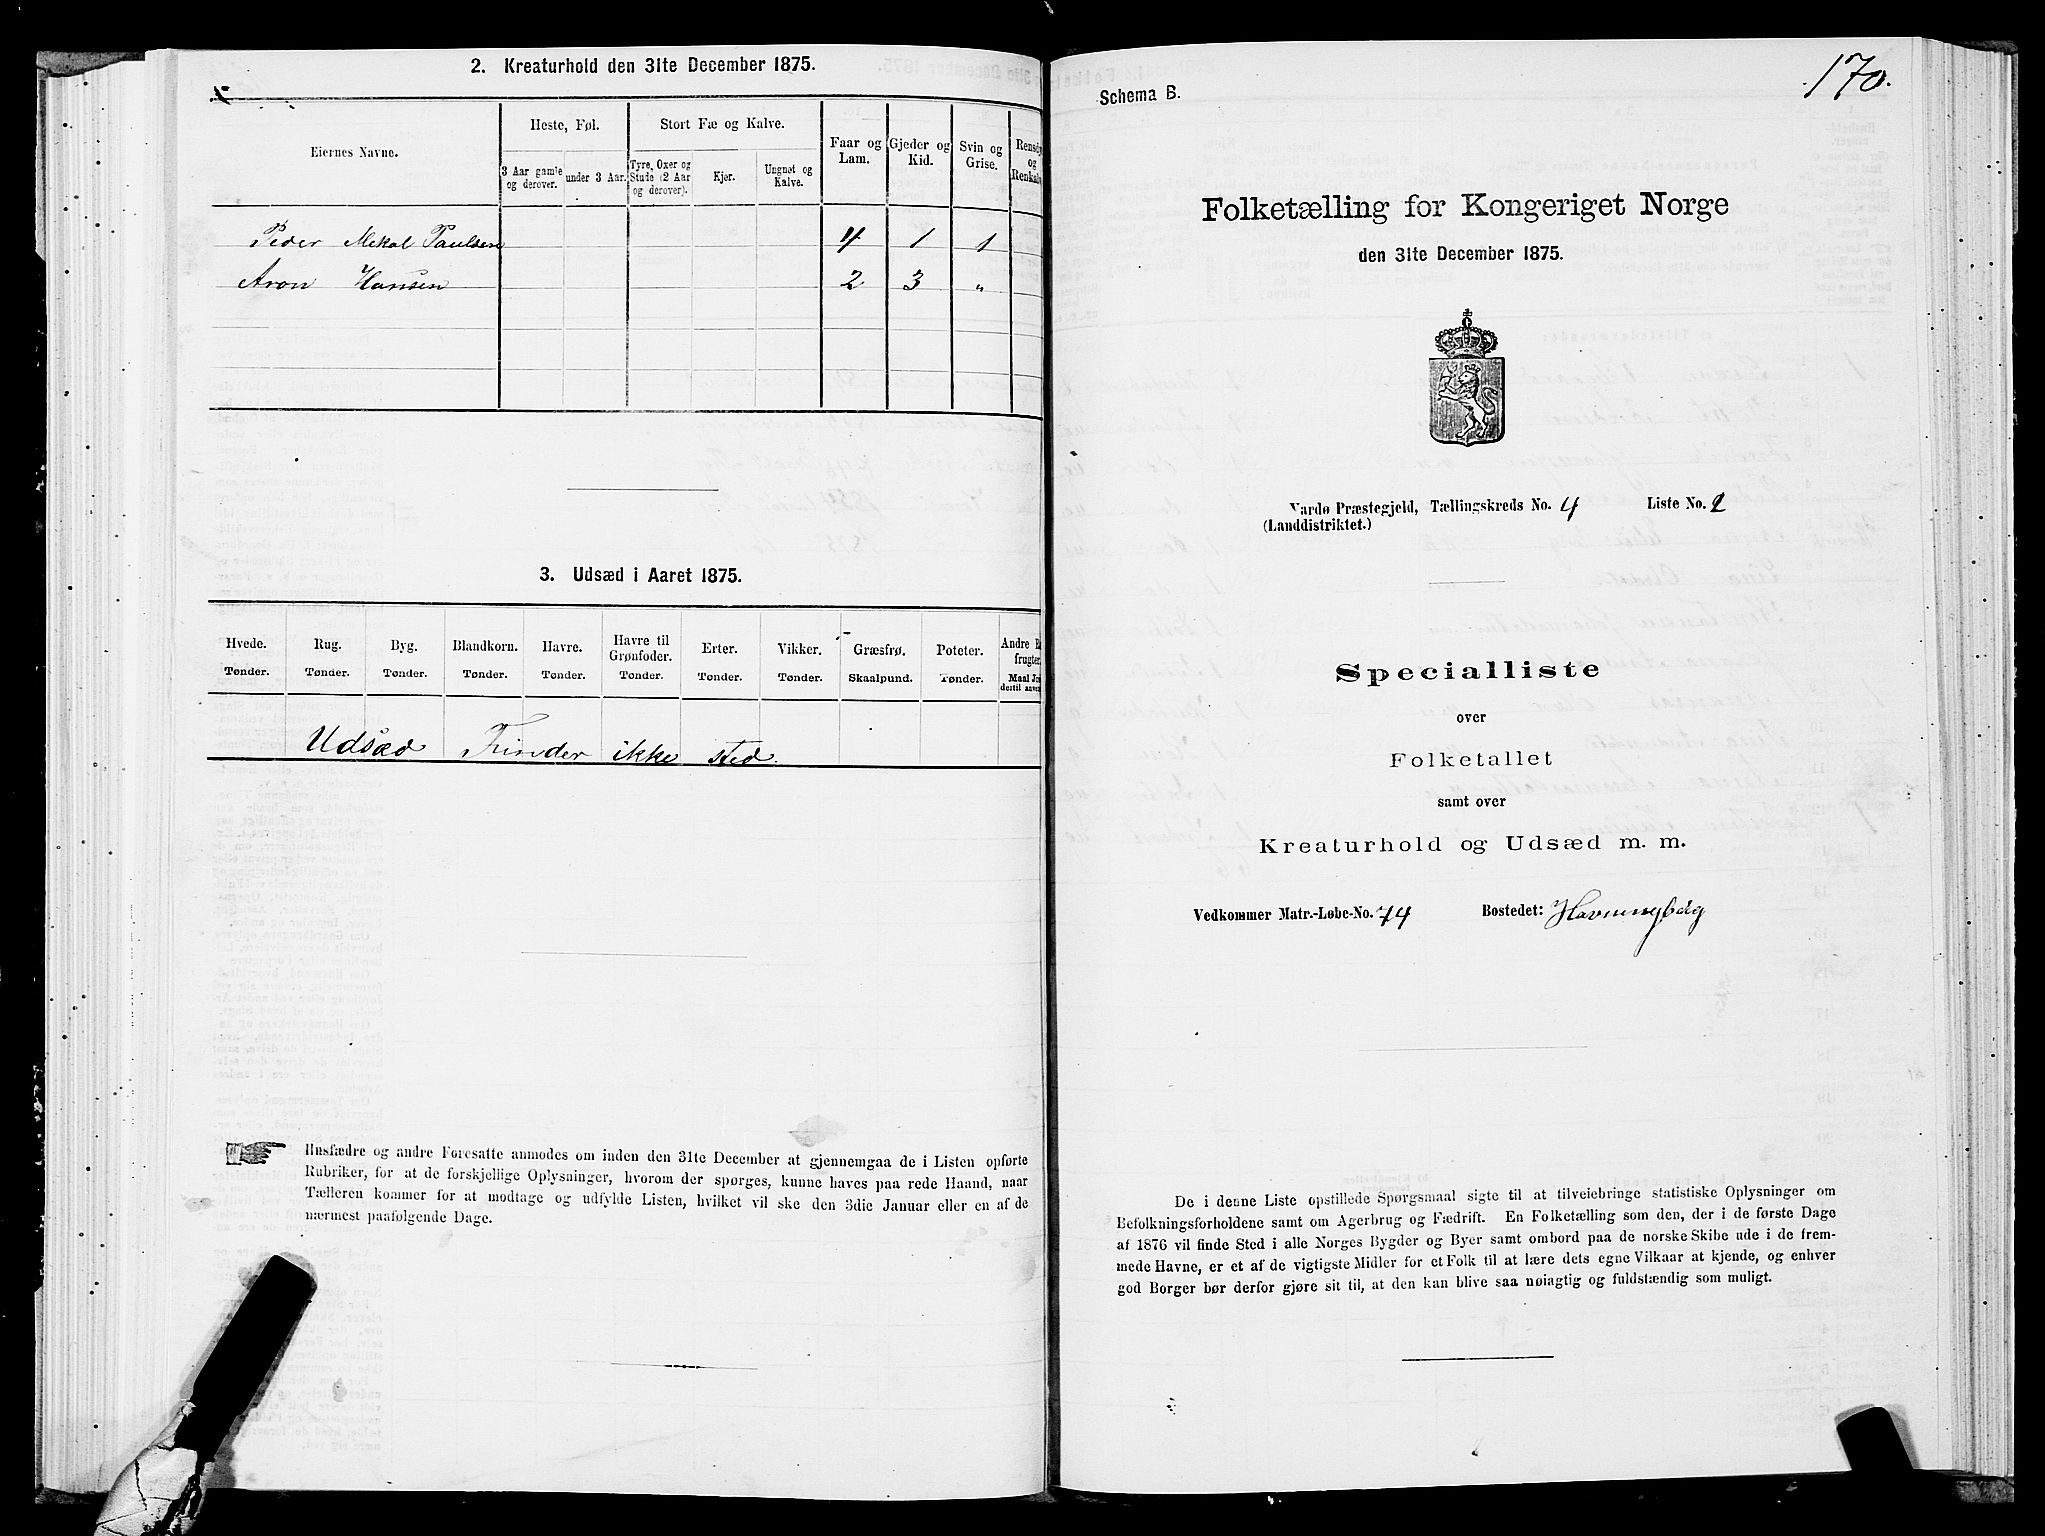 2. Kreaturhold den 31te December 1875.
Eiernes Navne.
Heste, Føl.
Stort Fæ og Kalve.
Faar og Lam.
Gjeder og Kid.
Svin og Grise.
Rensdyr og Renkalve
3 Aar gamle og derover.
under 3 Aar.
Tyre, Oxer og Stude (2 Aar og derover).
Kjer.
Ungnøt og Kalve.
Peder Mekal Paulsen 4 1 1
Aron Hansen 2 3 "
3. Udsæd i Aaret 1875.
Hvede. Rug. Byg. Blandkorn. Havre. Havre til Grønfoder. Erter. Vikker. Græsfrø. Poteter. Andre
frugter
Tønder. Tønder. Tønder. Tønder. Tønder. Tønder. Tønder. Tønder. Skaalpund. Tønder. Maal
Udsæd Finder ikke sted.
Husfædre og andre Foresatte anmodes om inden den 31te December at gjennemgaa de i Listen opførte
Rubriker, for at de forskjellige Oplysninger, hvorom der spørges, kunne haves paa rede Haand, naar
Tælleren kommer for at modtage og udfylde Listen, hvilket vil ske den 3die Januar eller en af de
nærmest paafølgende Dage.
170.
Schema B.
Folketælling for Kongeriget Norge
den 31te December 1875.
Vardø Præstegjeld, Tællingskreds No. 4 Liste No. 2
(Landdistriktet.)
Specialliste
over
Folketallet
samt over
Kreaturhold og Udsæd m. m.
Vedkommer Matr.-Løbe-No. 74 Bostedet: Havningberg
De i denne Liste opstillede Spørgsmaal sigte til at tilveiebringe statistiske Oplysninger om
Befolkningsforholdene samt om Agerbrug og Fædrift. En Folketælling som den, der i de første Dage
af 1876 vil finde Sted i alle Norges Bygder og Byer samt ombord paa de norske Skibe ude i de frem-
mede Havne, er et af de vigtigste Midler for et Folk til at lære dets egne Vilkaar at kjende, og enhver
god Borger bør derfor gjøre sit til, at den kan blive saa nøiagtig og fuldstændig som muligt.